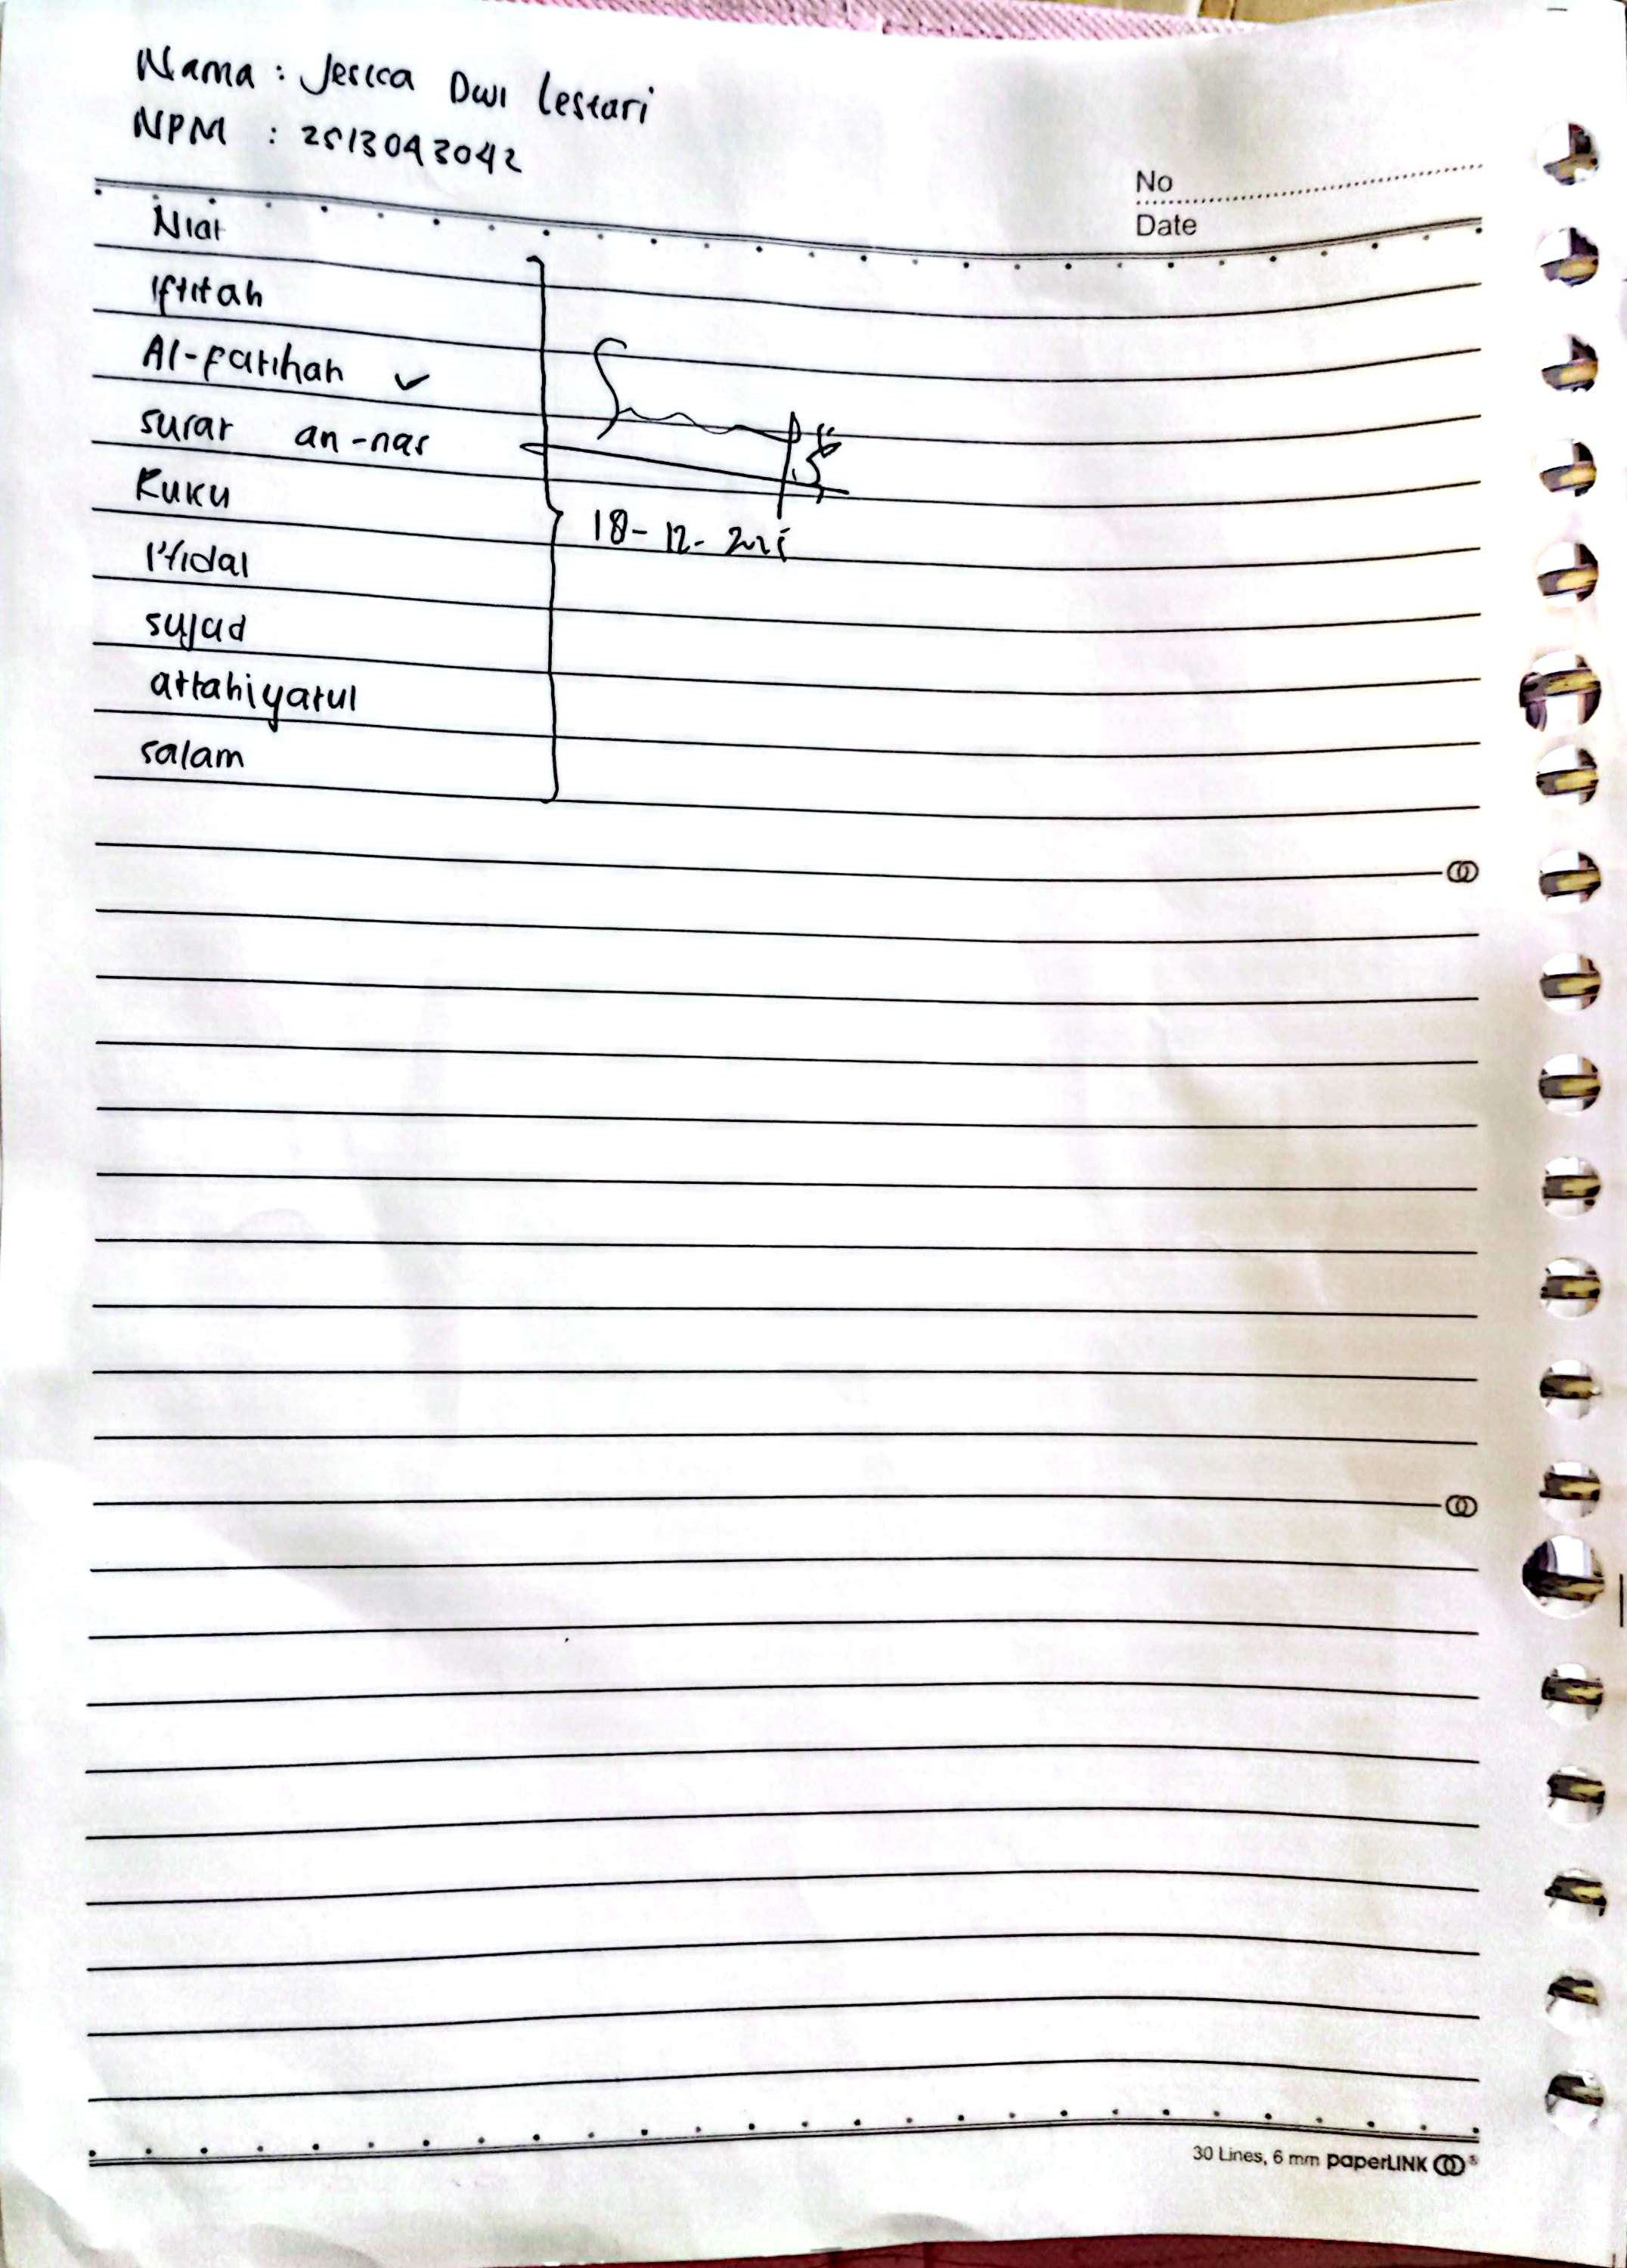 Nama : Jesica Dwi Lestari
NPM : 2513043042
No
Date
Niat
Iftitah
Al-fatihah ✓
surat an-nas
Ruku
I'tidal
sujud
attahiyatul
salam
18-12-2025
30 Lines, 6 mm paperLINK